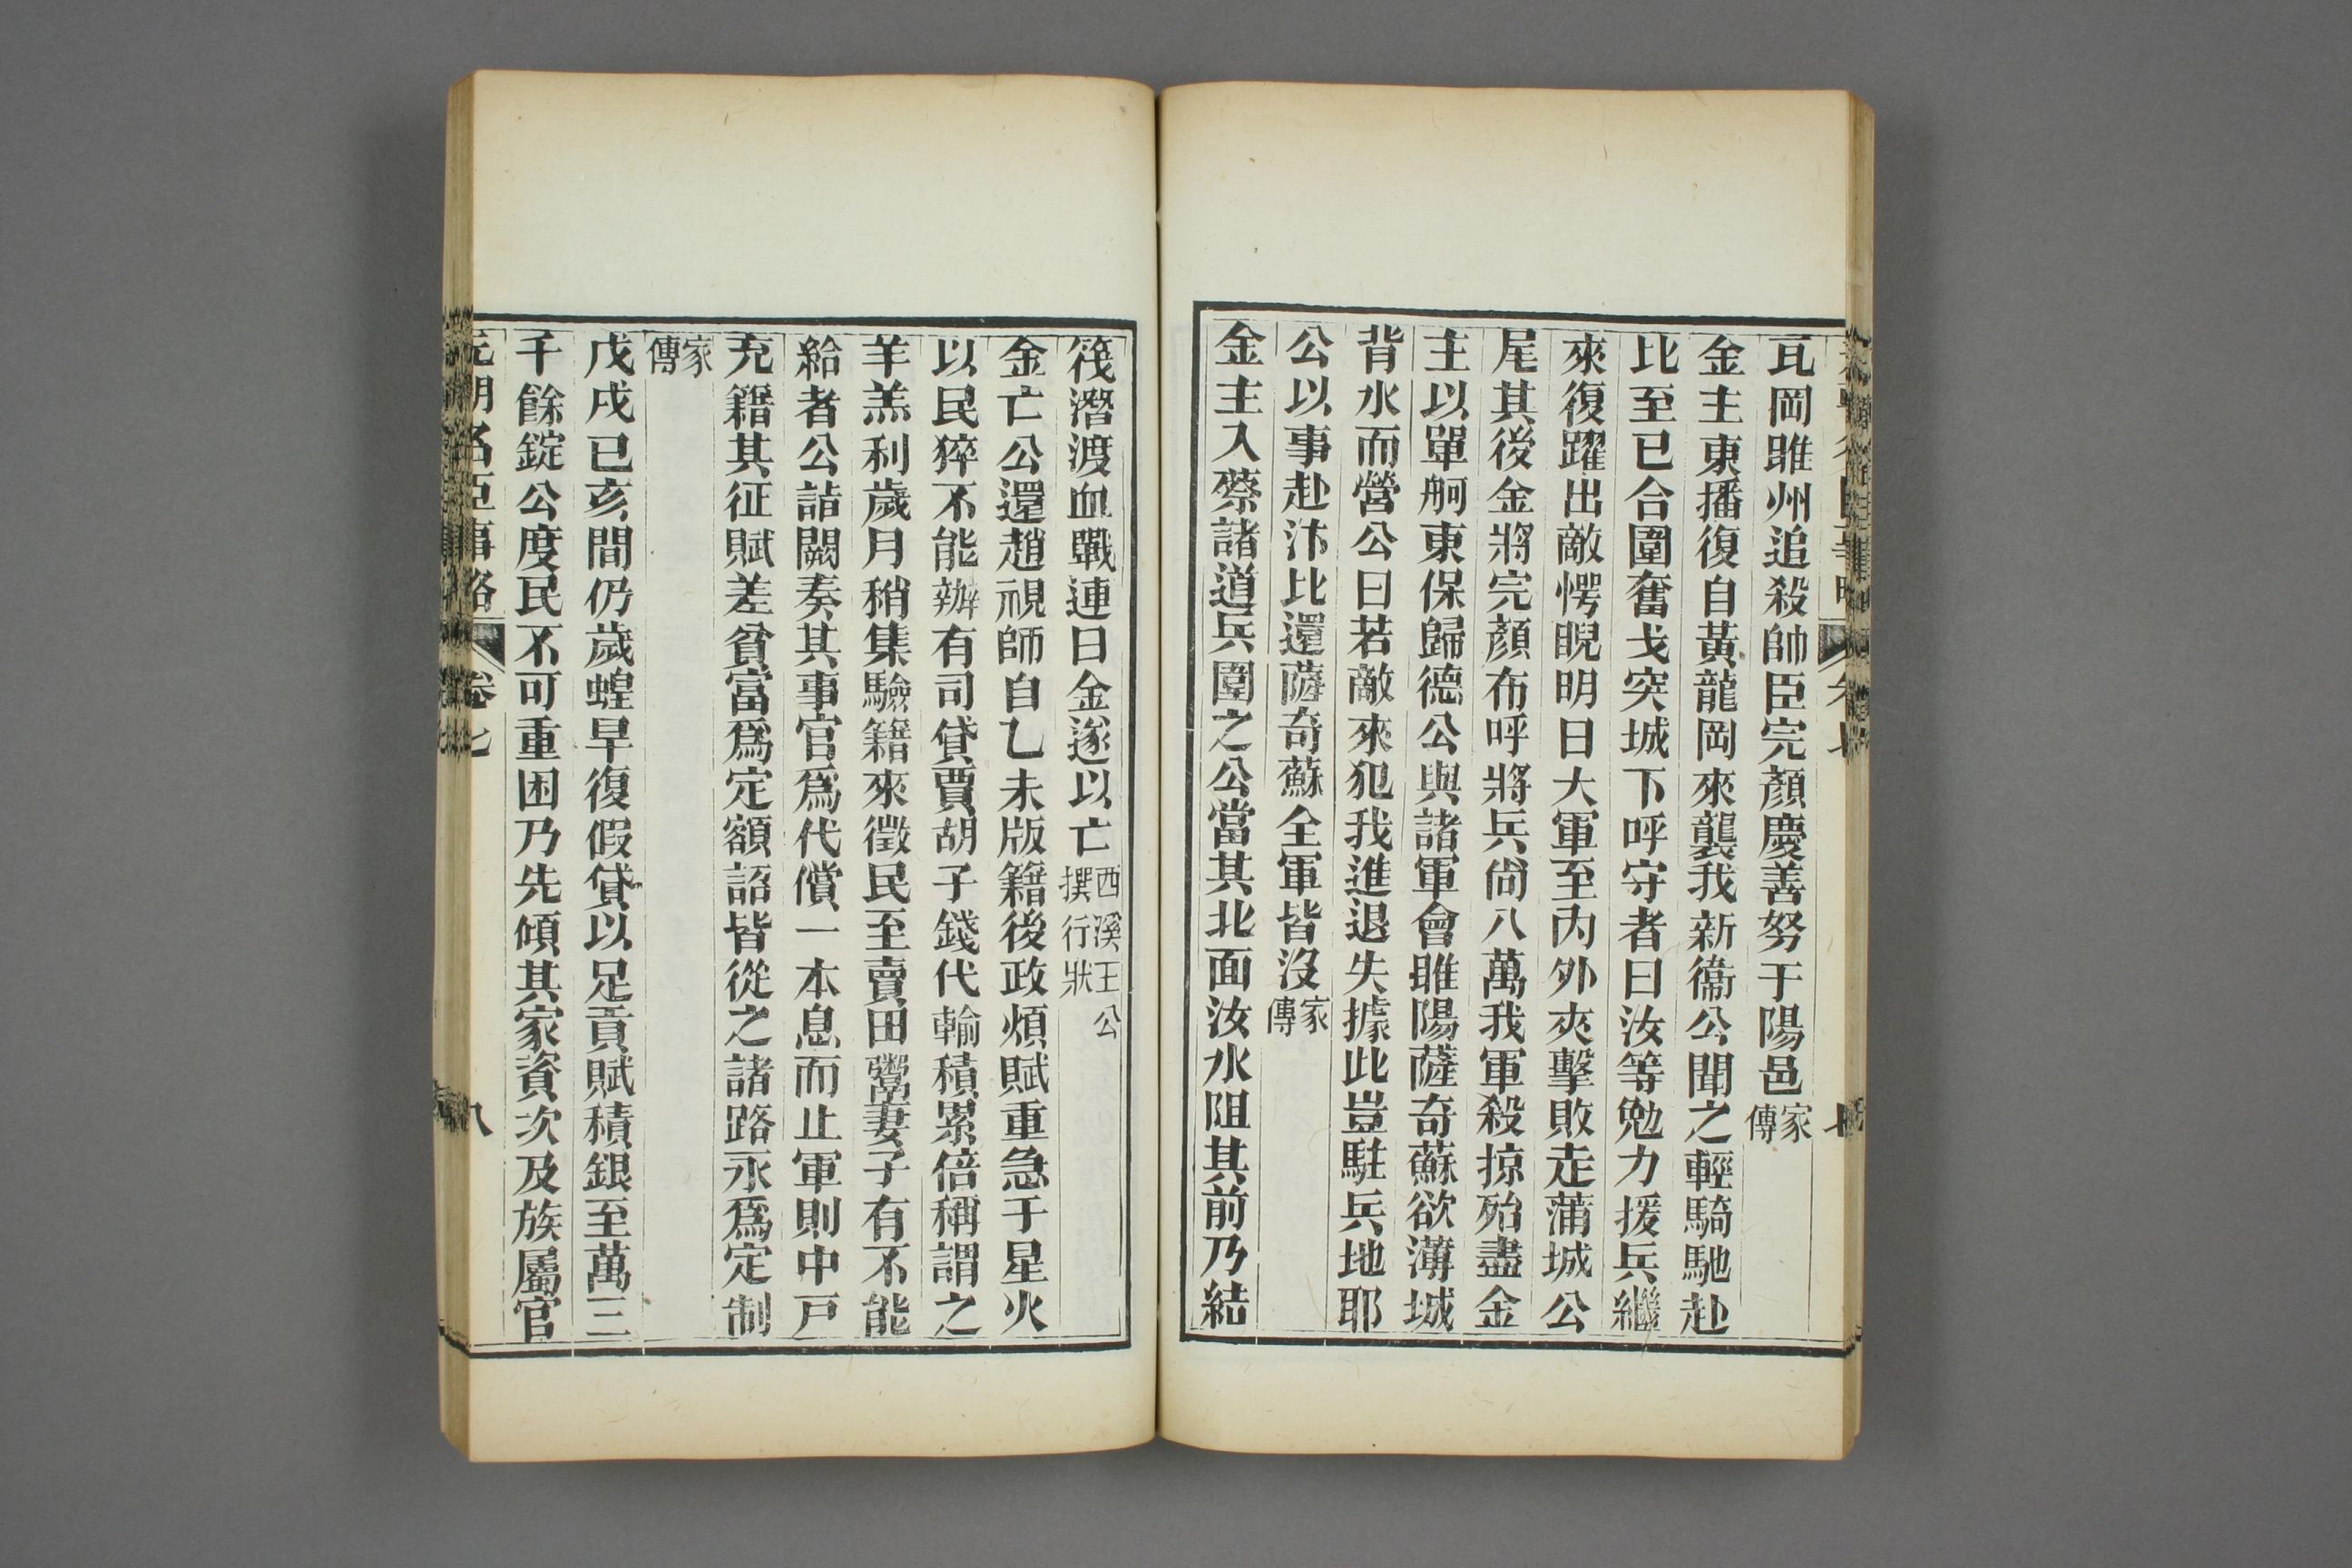 瓦岡雎州追殺帥臣完顏慶善努于陽邑家傳
金主東播復自黃龍岡來襲我新衞公聞之輕騎馳赴
比至已合圍奮戈突城下呼守者曰汝等勉力援兵繼
來復躍出敵愕睨明日大軍至內外夾擊敗走蒲城公
尾其後金將完顏布呼將兵尙八萬我軍殺掠殆盡金
主以單舸東保歸德公與諸軍會雎陽薩奇蘇欲薄城
背水而營公曰若敵來犯我進退失據此豈駐兵地耶
公以事赴汴比還薩奇蘇全軍皆沒家傳
金主入蔡諸道兵圍之公當其北面汝水阻其前乃結
筏潛渡血戰連日金遂以亡西溪王公撰行狀
金亡公還趙視師自乙未版籍後政煩賦重急于星火
以民猝不能辦有司貸賈胡子錢代輸積累倍稱謂之
羊羔利歲月稍集驗籍來徵民至賣田鬻妻子有不能
給者公詣闕奏其事官爲代償一本息而止軍則中戸
充籍其征賦差貧富爲定額詔皆從之諸路永爲定制
家傳
戊戌已亥間仍歲蝗旱復假貸以足貢賦積銀至萬三
千餘錠公度民不可重困乃先傾其家資次及族屬官
元朝名臣事略 卷七 八